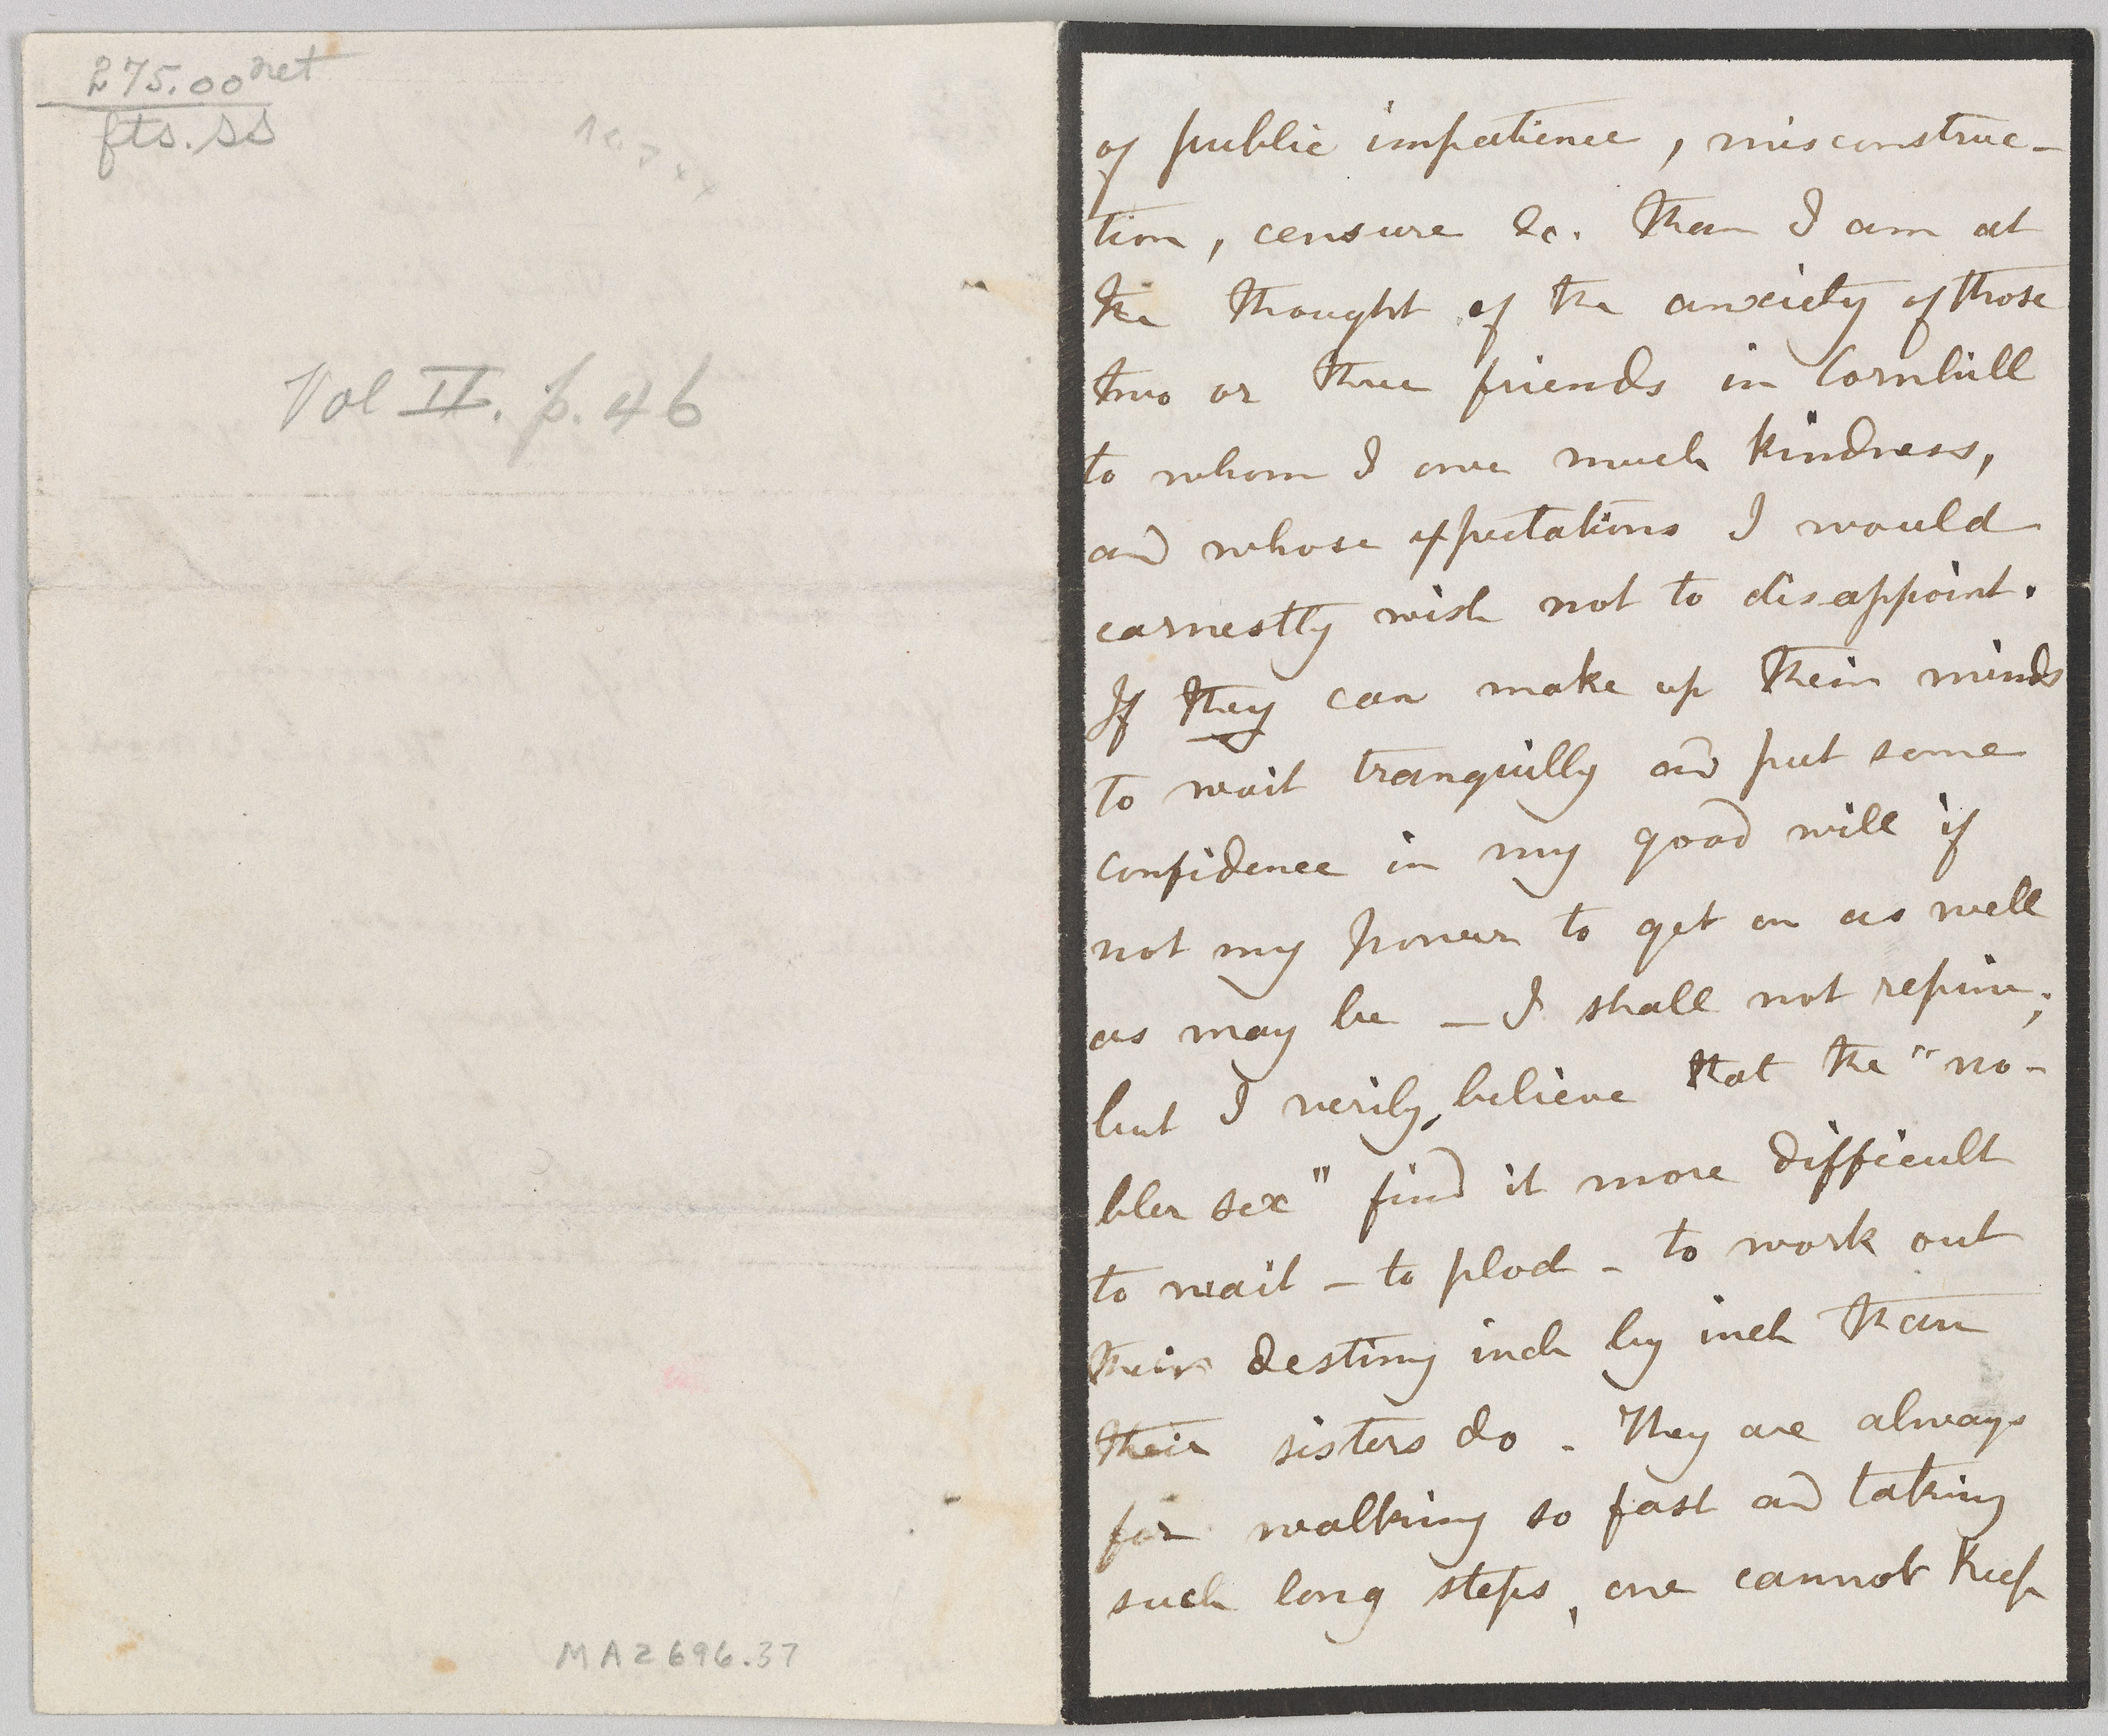 275.00 net
fts. ss
Vol II. p. 46
MA 2696.37
of public impatience, misconstruc-
tion, censure &c. than I am at
the thought of the anxiety of those
two or three friends in Cornhill
to whom I owe much kindness,
and whose expectations I would
earnestly wish not to disappoint.
If they can make up their minds
to wait tranquilly and put some
confidence in my good will if
not my power to get on as well
as may be – I shall not repine;
but I verily believe that the "no-
bler sex" find it more difficult
to wait – to plod – to work out
their destiny inch by inch than
their sisters do – They are always
for walking so fast and taking
such long steps, one cannot keep